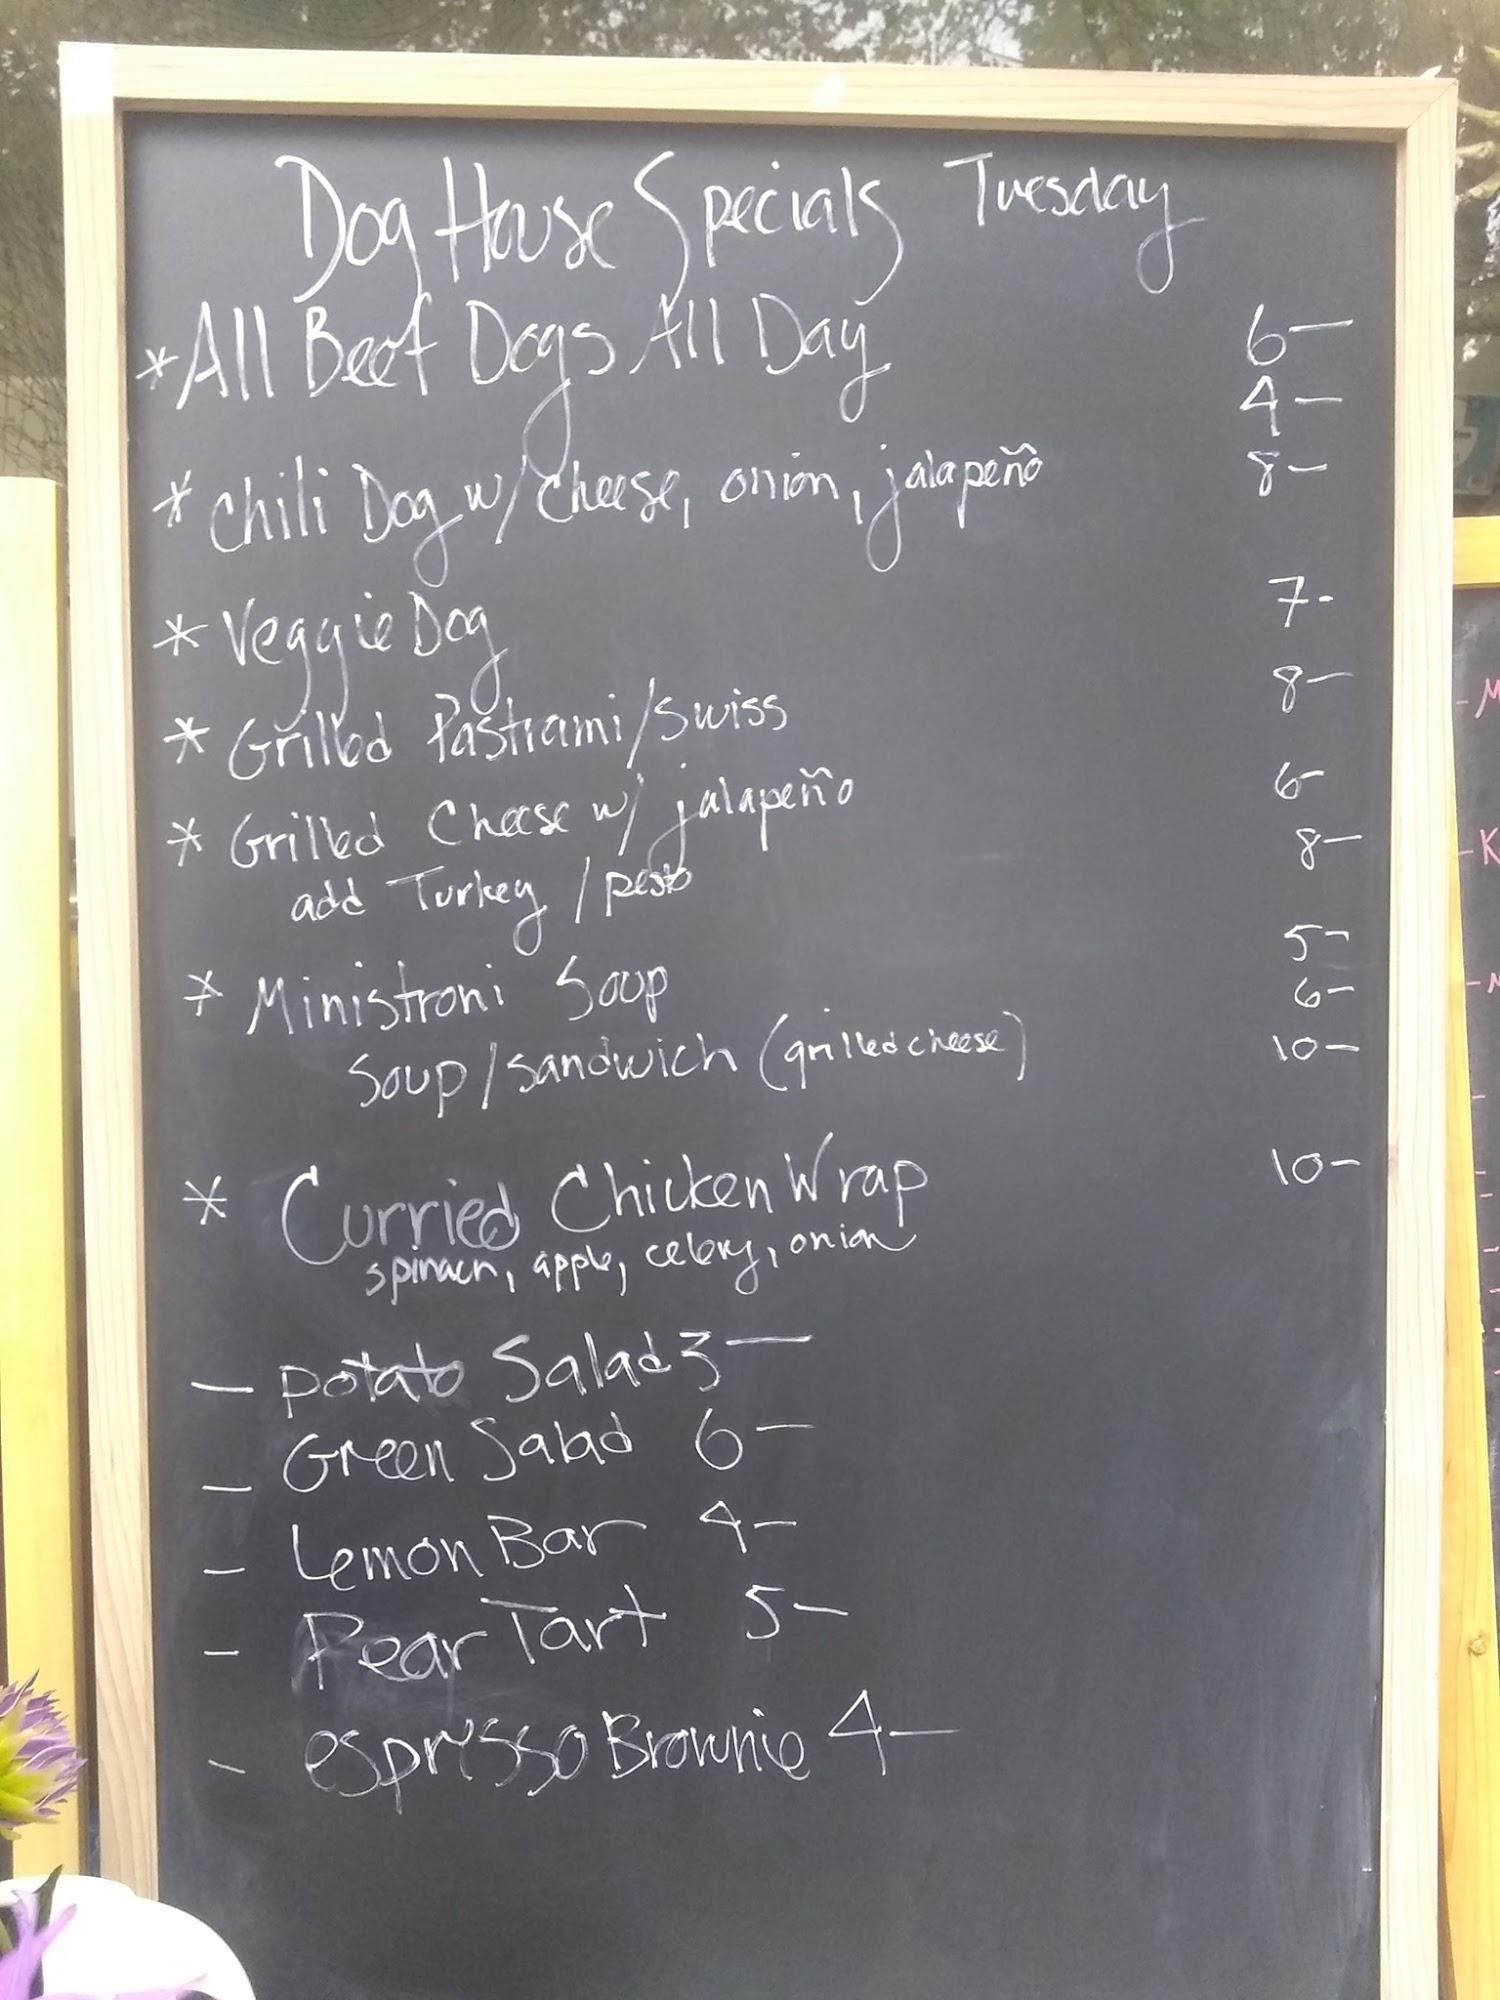 Dog House Specials Tuesday
* All Beef Dogs All Day 6—
4—
* Chili Dog w/ cheese, onion, jalapeño 8—
* Veggie Dog 7-
* Grilled Pastrami/Swiss 8—
* Grilled Cheese w/ jalapeño 6-
add Turkey / pesto 8—
* Ministroni Soup 5-
6-
Soup/sandwich (grilled cheese) 10—
* Curried Chicken Wrap 10—
spinach, apple, celery, onion
— potato Salad 3—
— Green Salad 6—
— Lemon Bar 4—
— Pear Tart 5—
- espresso Brownie 4—